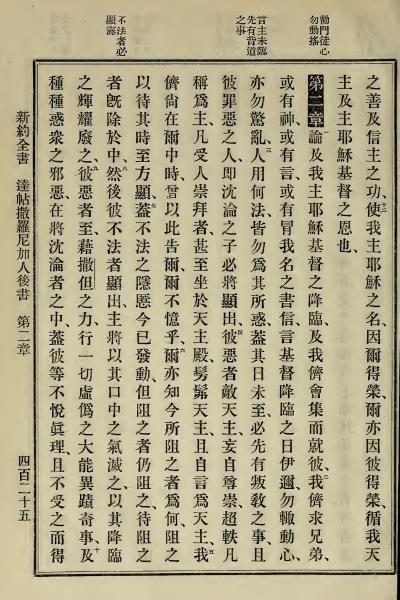 勸門徒心
勿動搖
言主未臨
先有背道
之事
不法者必
顯露
之善及信主之功、使我主耶穌之名、因爾得榮、爾亦因彼得榮、循我天
主及主耶穌基督之恩也、
第二章 論及我主耶穌基督之降臨、及我儕會集而就彼、我儕求兄弟、
或有神、或有言、或有冒我名之書信、言基督降臨之日伊邇、勿輙動心、
亦勿驚亂、人用何法、皆勿爲其所惑、蓋其日未至、必先有叛敎之事、且
彼罪惡之人、即沈淪之子、必將顯出、彼惡者敵天主、妄自尊崇、超軼凡
稱爲主、凡受人崇拜者、甚至坐於天主殿、髣髴天主、且自言爲天主、我
儕尙在爾中時、曾以此告爾、爾不憶乎、爾亦知今所阻之者爲何、阻之
以待其時至方顯、蓋不法之隱慝、今已發動、但阻之者仍阻之、待阻之
者旣除於中、然後彼不法者顯出、主將以其口中之氣滅之、以其降臨
之輝耀廢之、彼惡者至、藉撒但之力、行一切虛僞之大能異蹟奇事、及
種種惑衆之邪惡、在將沈淪者之中、蓋彼等不悅眞理、且不受之而得
新約全書 達帖撒羅尼加人後書 第二章 四百二十五